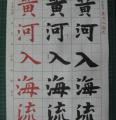 黄河入海流
黄河入海流
黄河入海流